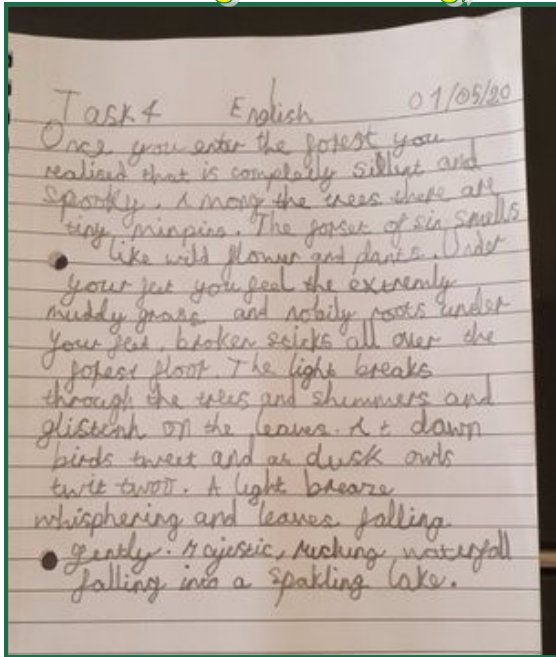 Task 4 English 01/05/20
Once you enter the forest you
realised that is completly sillint and
spooky. Among the trees there are
tiny minpins. The forset of sin smells
like wild flower and plants. Under
your feet you feel the extremly
muddy grass and nobily roots under
your feet, broken sticks all over the
forest floor. The light breaks
through the trees and shimmers and
glistenh on the leaves. At dawn
birds tweet and as dusk owls
twit twoo. A light breaze
whisphering and leaves falling
gently. Majestic, rushing waterfall
falling into a spakling lake.